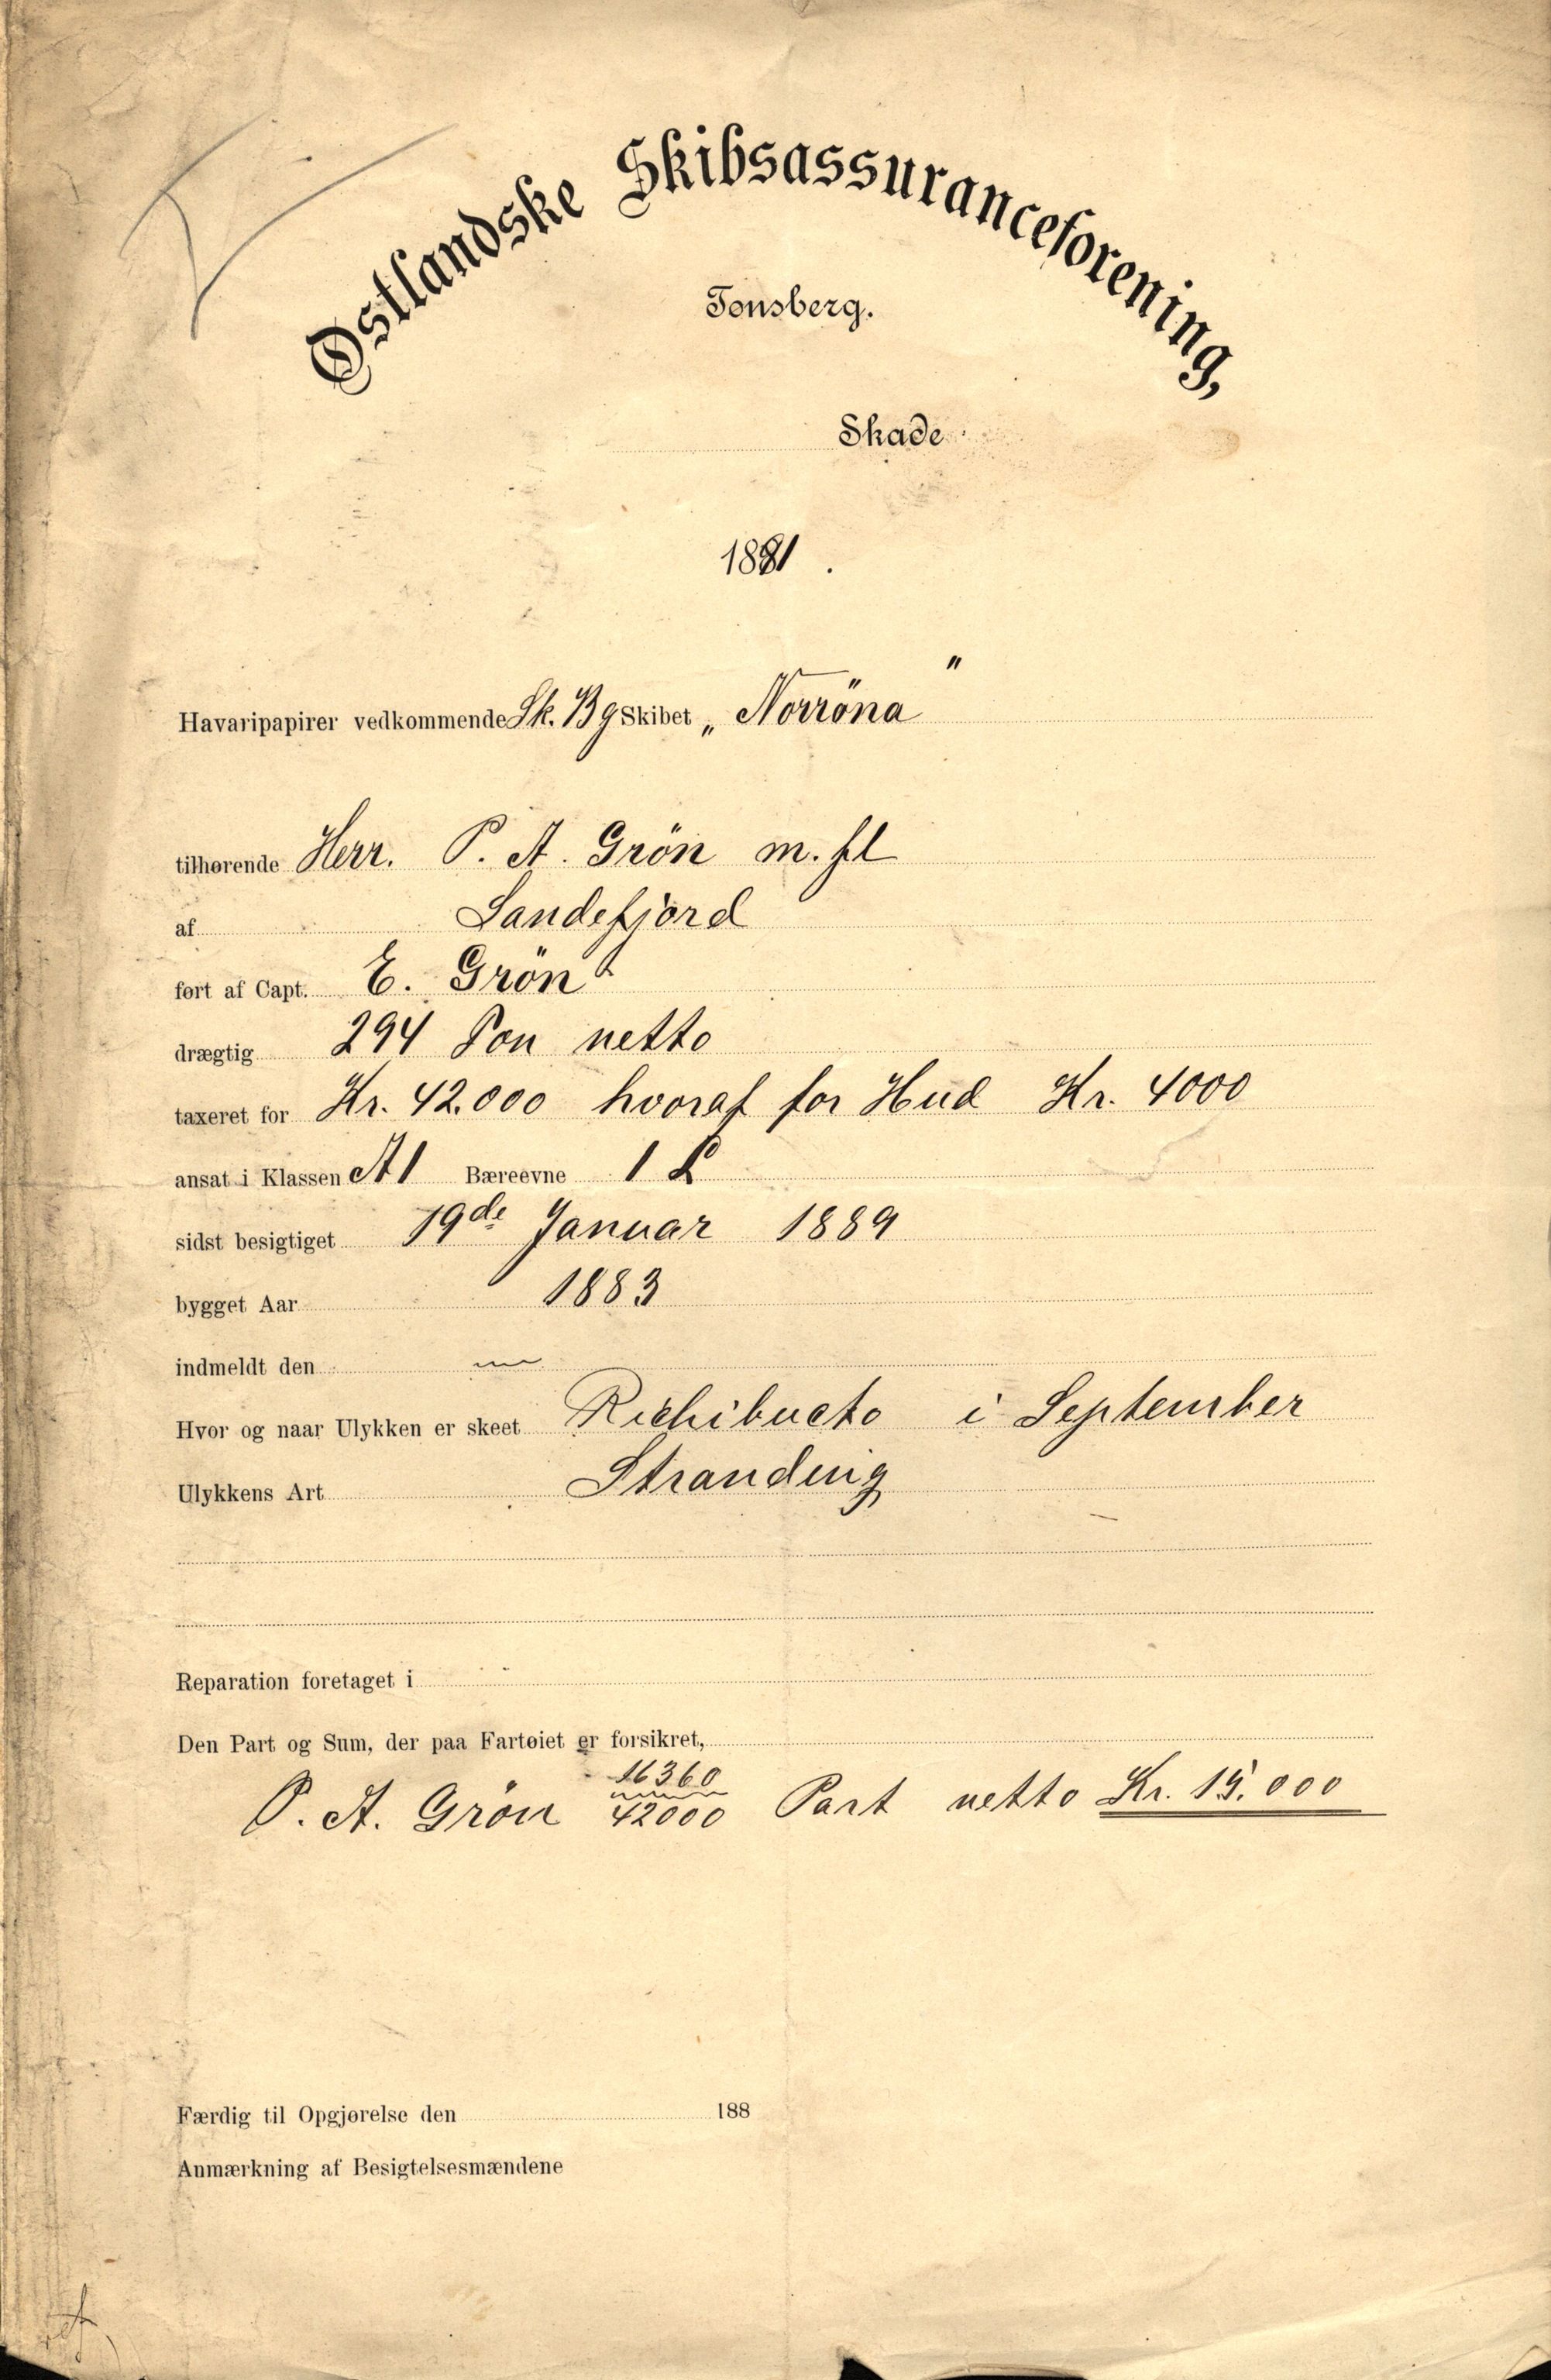 Østlandske Skibsassuranceforening,
Tønsberg.
Skade
1891.
Havaripapirer vedkommende Sk. Bg Skibet „Norröna"
tilhørende Herr. P. A. Grön m. fl
af Sandefjord
ført af Capt. E. Grön
drægtig 294 Ton netto
taxeret for Kr. 42.000 hvoraf for Hud Kr. 4000
ansat i Klassen A1 Bæreevne 1 L
sidst besigtiget 19de Januar 1889
bygget Aar 1883
indmeldt den
Hvor og naar Ulykken er skeet Richibucto i September
Ulykkens Art Stranding
Reparation foretaget i
Den Part og Sum, der paa Fartøiet er forsikret,
P. A. Grön 16360/42000 Part netto Kr. 15.000
Færdig til Opgjørelse den 188
Anmærkning af Besigtelsesmændene